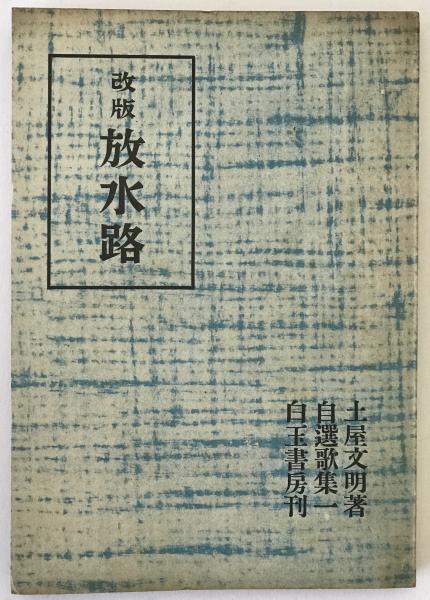 改版
放水路
土屋文明著
自選歌集一
白玉書房刊